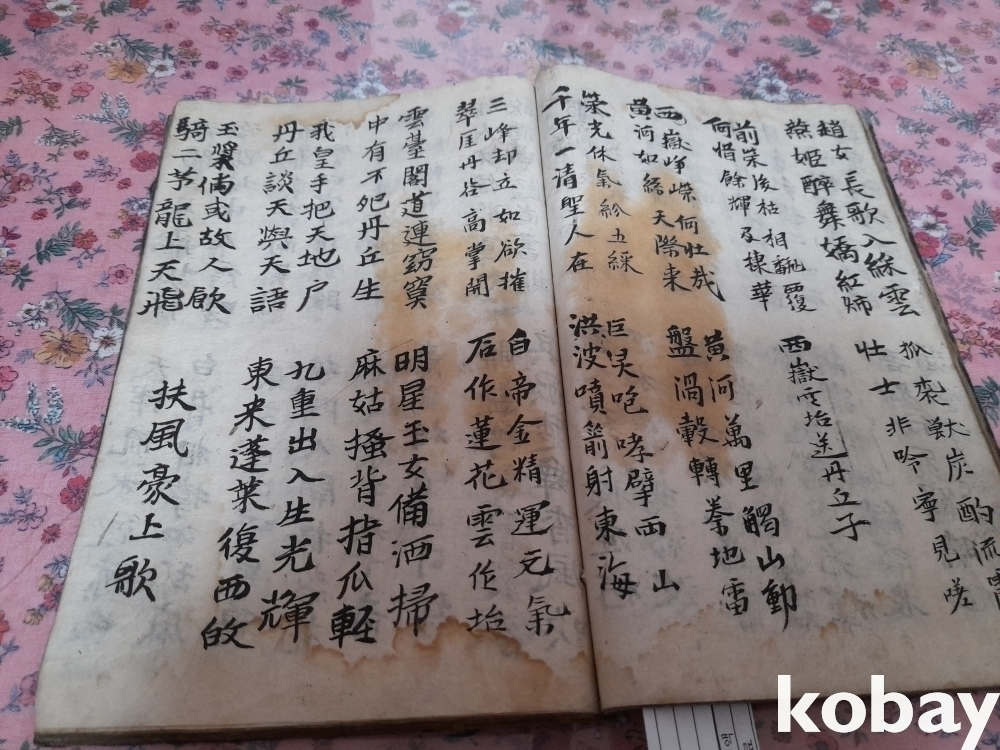 趙女長歌入綵雲
燕姬醉舞嬌紅燭
狐裘獸炭酌流霞
壮士非吟寧見嗟
前荣後枯相飜覆
何惜餘輝及棣華
西嶽雲坮送丹丘子
西嶽崢嶸何壮哉
黄河如絲天際来
黄河萬里觸山動
盤渦轂轉秦地雷
荣光休氣紛五綵
千年一清聖人在
巨灵咆哮擘両山
洪波噴箭射東海
三峰却立如欲摧
翠厓丹谷高掌開
白帝金精運元氣
石作蓮花雲作坮
雲臺閣道連窈冥
中有不死丹丘生
明星玉女備洒掃
麻姑搔背指爪軽
我皇手把天地户
丹丘談天與天語
九重出入生光輝
東来蓬萊復西皈
玉漿倘或故人飮
騎二茅龍上天飛
扶風豪上歌
kobay